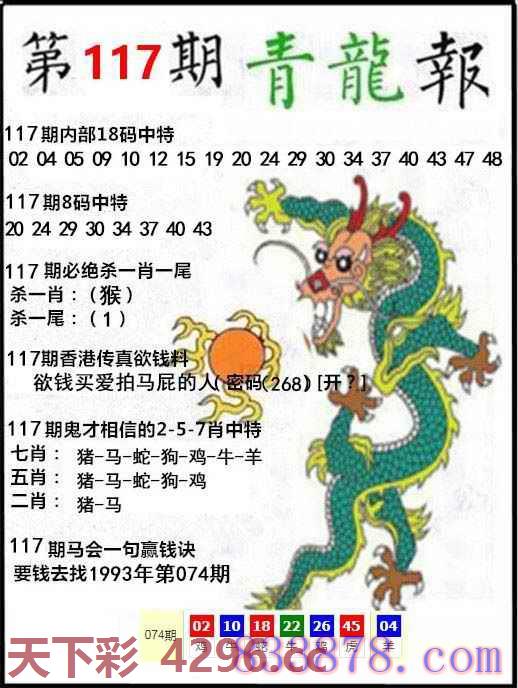 第117期青龍報
117期内部18码中特
02 04 05 09 10 12 15 19 20 24 29 30 34 37 40 43 47 48
117期8码中特
20 24 29 30 34 37 40 43
117期必绝杀一肖一尾
杀一肖：（猴）
杀一尾：（1）
117期香港传真欲钱料
欲钱买爱拍马屁的人( 密码(268) [开？]
117期鬼才相信的2-5-7肖中特
七肖： 猪-马-蛇-狗-鸡-牛-羊
五肖： 猪-马-蛇-狗-鸡
二肖： 猪-马
117期马会一句赢钱诀
要钱去找1993年第074期
074期 02 10 18 22 26 45 04
鸡 牛 蛇 牛 鸡 虎 羊
天下彩 4296.cc
838878.com